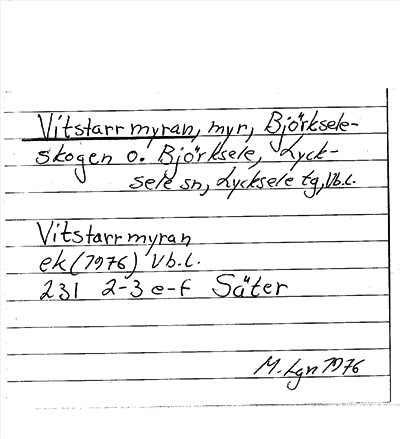 Vitstarrmyran, myr, Björksele-
skogen o. Björksele, Lyck-
sele sn, Lycksele tg, Vb.l.
Vitstarrmyran
ek (1976) Vb.l.
231 2-3 e-f Säter
M. Lgn 1976